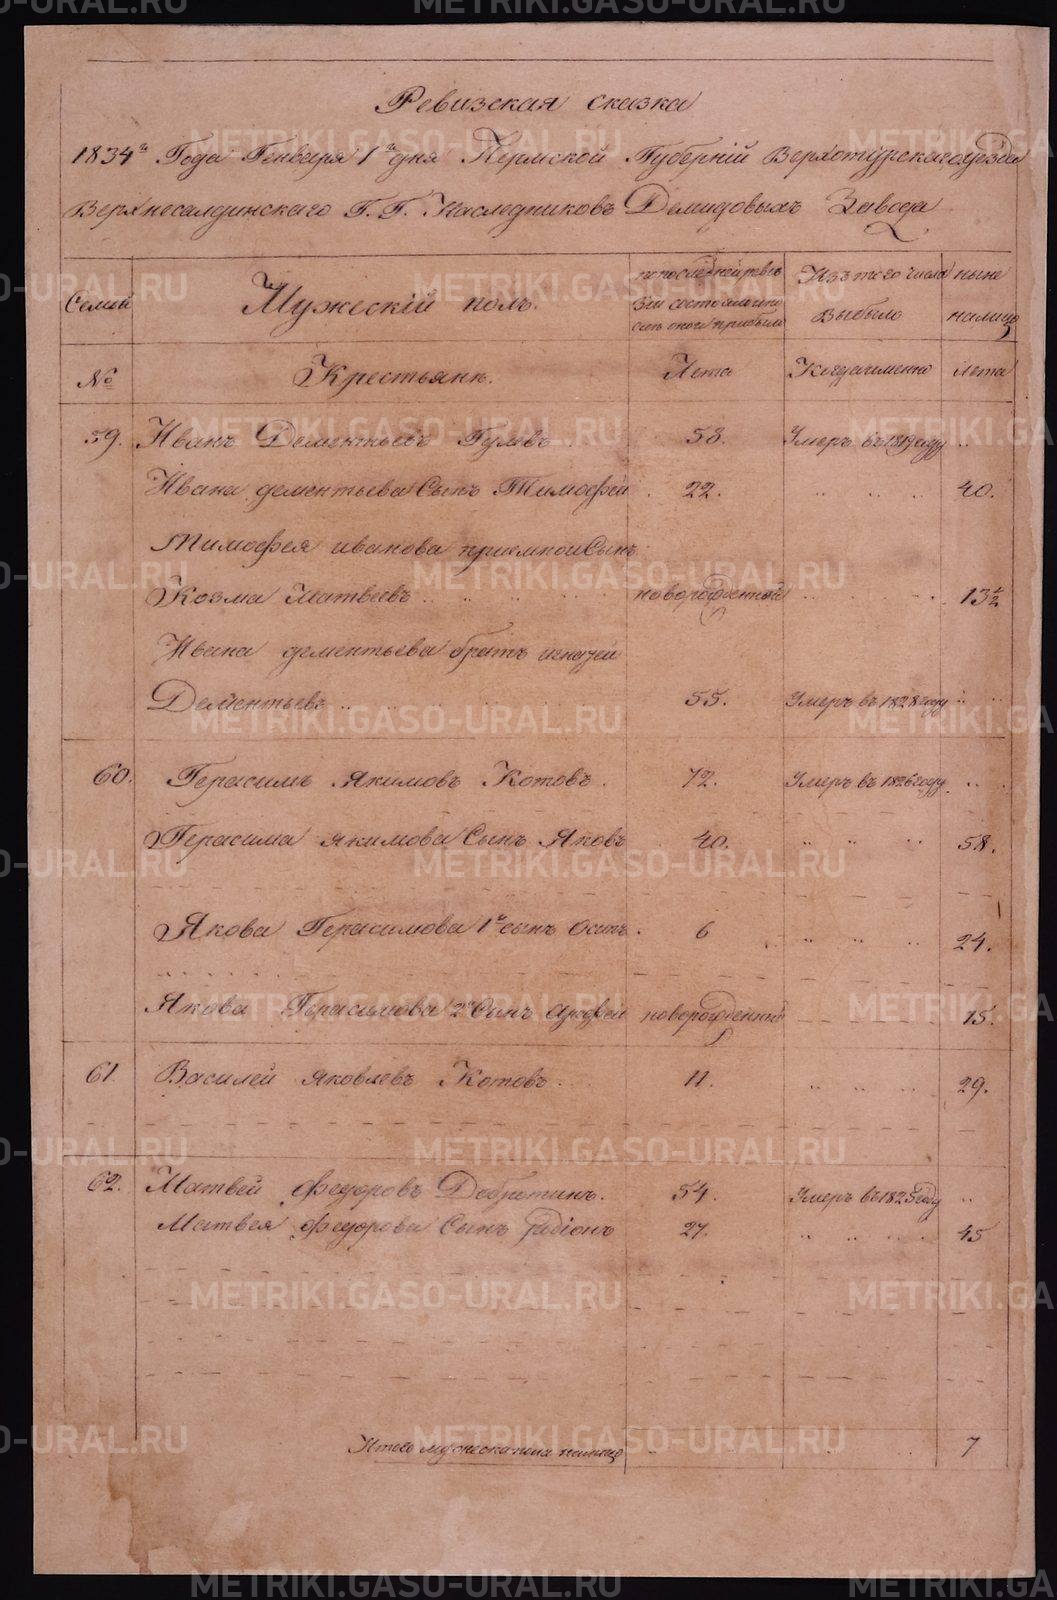 Ревизская сказка
1834го Года Генваря 1го дня Пермской Губернiй Верхотурскаго уезда
Верхнесалдинскаго Г. Г. Наследниковъ Демидовыхъ Завода
Семей
Мужескiй полъ.
по последней ревизiи состояло и после оной прибыло
Изъ того числа Выбыло
ныне на лицо
№
Крестьяне.
Лета
Когда именно
Лета
59. Иванъ Дементьевъ 58. Умеръ въ 1819 году
Ивана дементьева Сынъ Тимофей 22. 40.
Тимофея иванова приемной Сынъ
Козма Матвеевъ новорожденной 13 1/2
Ивана дементьева братъ
Дементьевъ 55. Умеръ въ 1828 году
60. Герасимъ Якимовъ Котовъ. 72. Умеръ въ 1826 году
Герасима якимова Сынъ Яковъ 40. 58.
Якова Герасимова 1й сынъ осипъ 6 24.
Якова Герасимова 2й Сынъ новорожденный 15.
61. Василей яковлевъ Котовъ. 11. 29.
62. Матвей федоровъ 54. Умеръ въ 1825 году
Матвея федорова Сынъ радiонъ 27. 45
Итого мужеска пола налицо 7
METRIKI.GASO-URAL.RU